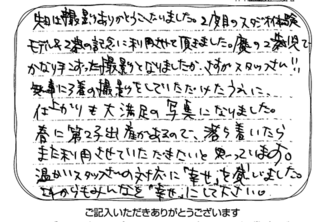 先日は撮影ありがとうございました。2度目のスタジオ体験
モデル2歳の記念に利用させて頂きました。魔の2歳児で
かなり手こずった撮影となりましたが、さすがスタッフさん!!
無事に3着の撮影をしていただけたうえに、
仕上がりも大満足の写真になりました。
春に第2子出産がまつので、落ち着いたら
また利用させていただきたいと思っています。
温かいスタッフさんの対応に"幸せ"を感じました。
これからもみんなを"幸せ"にして下さい。
ご記入いただきありがとうございます